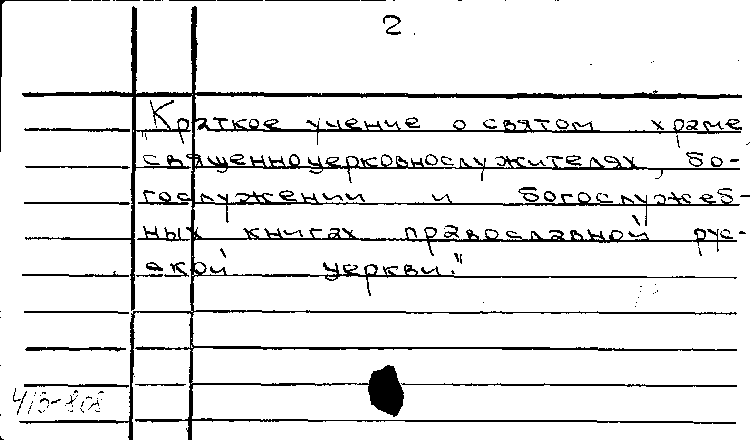 2.
„Краткое учение о святом храме
священноцерковнослужителях, бо-
гослужении и богослужеб-
ных книгах православной рус-
ской церкви."
413-808